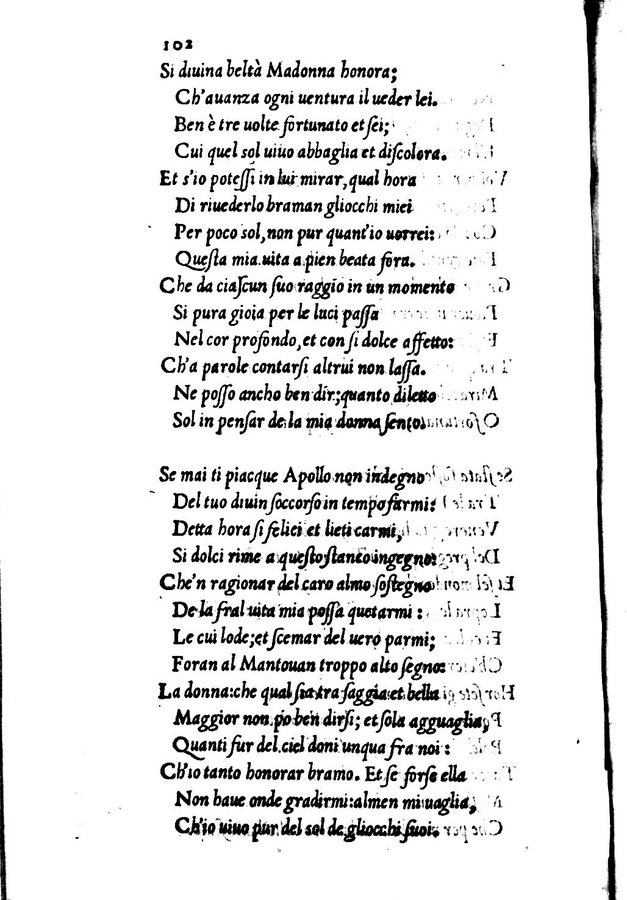 102
Si diuina beltà Madonna honora;
Ch'auanza ogni uentura il ueder lei.
Ben è tre uolte fortunato et sei;
Cui quel sol uiuo abbaglia et discolora.
Et s'io potessi in lui mirar, qual hora
Di riuederlo braman gliocchi miei
Per poco sol, non pur quant'io uorrei:
Questa mia uita a pien beata fora.
Che da ciascun suo raggio in un momento
Si pura gioia per le luci passa
Nel cor profondo, et con si dolce affetto:
Ch'a parole contarsi altrui non lassa.
Ne posso ancho ben dir; quanto diletto
Sol in pensar de la mia donna sento.
Se mai ti piacque Apollo non indegno
Del tuo diuin soccorso in tempo farmi:
Detta hora si felici et lieti carmi,
Si dolci rime a questo stanto ingegno:
Che'n ragionar del caro almo sostegno
De la fral uita mia possa quetarmi :
Le cui lode; et scemar del uero parmi;
Foran al Mantouan troppo alto segno:
La donna: che qual sia tra saggia et bella
Maggior non po ben dirsi; et sola agguaglia,
Quanti fur del ciel doni unqua fra noi :
Ch'io tanto honorar bramo. Et se forse ella
Non haue onde gradirmi: almen mi uaglia,
Ch'io uiuo pur del sol de gliocchi suoi.